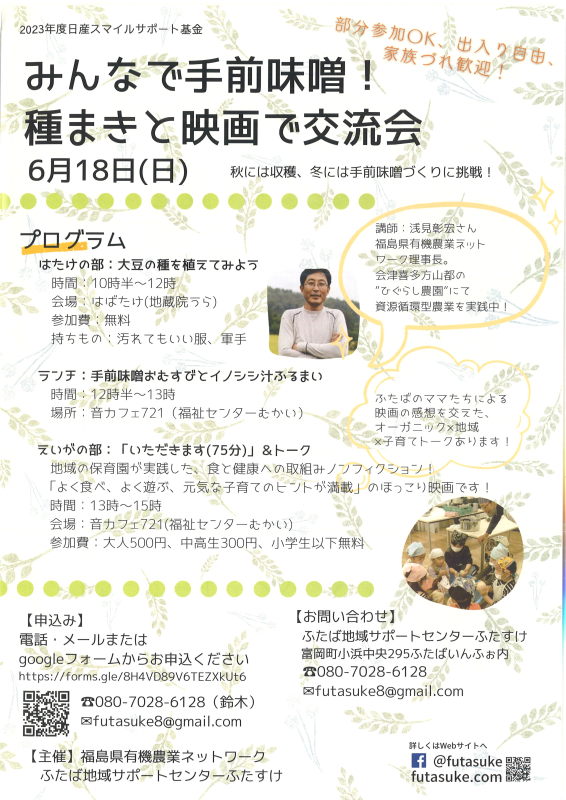 2023年度日産スマイルサポート基金
部分参加OK、出入り自由、
家族づれ歓迎！
みんなで手前味噌！
種まきと映画で交流会
6月18日(日)
秋には収穫、冬には手前味噌づくりに挑戦！
プログラム
はたけの部：大豆の種を植えてみよう
時間：10時半〜12時
会場：はばたけ(地蔵院うら)
参加費：無料
持ちもの：汚れてもいい服、軍手
講師：浅見彰宏さん
福島県有機農業ネット
ワーク理事長。
会津喜多方山都の
"ひぐらし農園"にて
資源循環型農業を実践中！
ランチ：手前味噌おむすびとイノシシ汁ふるまい
時間：12時半〜13時
場所：音カフェ721（福祉センターむかい）
ふたばのママたちによる
映画の感想を交えた、
オーガニック×地域
×子育てトークあります！
えいがの部：「いただきます(75分)」&トーク
地域の保育園が実践した、食と健康への取組みノンフィクション！
「よく食べ、よく遊ぶ、元気な子育てのヒントが満載」のほっこり映画です！
時間：13時〜15時
会場：音カフェ721(福祉センターむかい)
参加費：大人500円、中高生300円、小学生以下無料
【申込み】
電話・メールまたは
googleフォームからお申込ください
https://forms.gle/8H4VD89V6TEZXkUt6
☎080-7028-6128（鈴木）
✉futasuke8@gmail.com
【お問い合わせ】
ふたば地域サポートセンターふたすけ
富岡町小浜中央295ふたばいんふぉ内
☎080-7028-6128
✉futasuke8@gmail.com
【主催】福島県有機農業ネットワーク
ふたば地域サポートセンターふたすけ
詳しくはWebサイトへ
@futasuke
futasuke.com